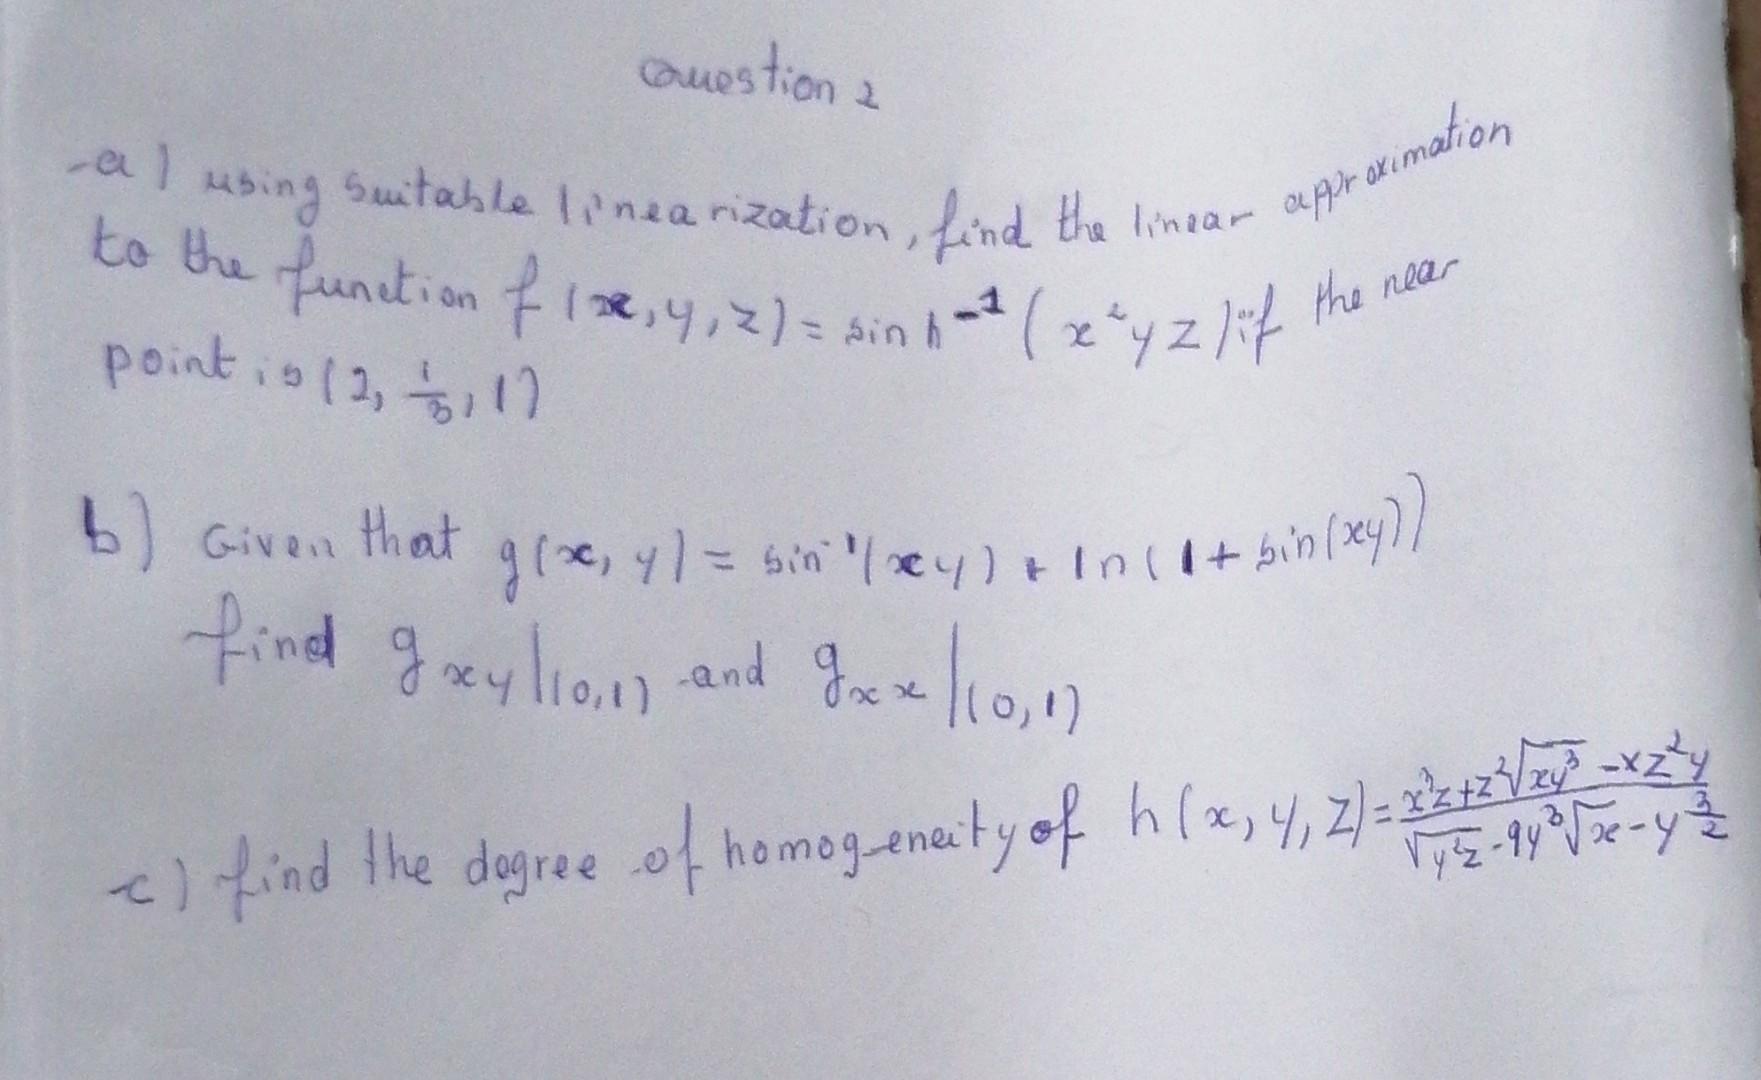 Question 2
a) using suitable linearization, find the linear approximation
to the function f(x, y, z) = sinh⁻¹(x²yz) if the near
point is (2, 1/3, 1)
b) Given that g(x, y) = sin⁻¹(xy) + ln(1 + sin(xy))
find gxy|(0,1) and gxx|(0,1)
c) find the degree of homogeneity of h(x, y, z) = (x³z + z²√(xy³) - xz²y) / (√(y²z) - 9y³√x - y^(3/2))